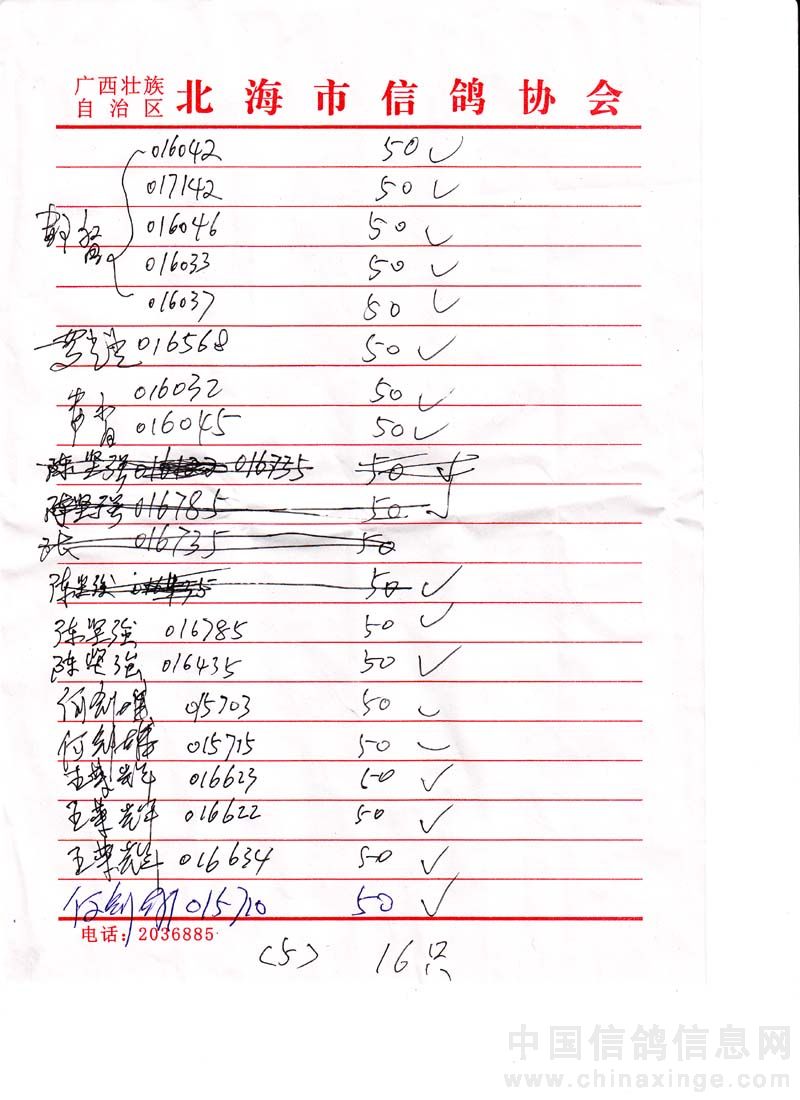 广西壮族
自治区 北海市信鸽协会
016042 50 ✓
017142 50 ✓
016046 50 ✓
016033 50 ✓
016037 50 ✓
016568 50 ✓
016032 50 ✓
016045 50 ✓
陈坚强 016735 50 ✓
陈坚强 016785 50 ✓
张 016735 50
陈坚强 50 ✓
陈坚强 016785 50 ✓
陈坚强 016435 50 ✓
何剑雄 015703 50 ✓
何剑雄 015715 50 ✓
王 016623 50 ✓
王 016622 50 ✓
王 016634 50 ✓
何剑 015710 50 ✓
电话：2036885
(5) 16只
中国信鸽信息网
www.chinaxinge.com